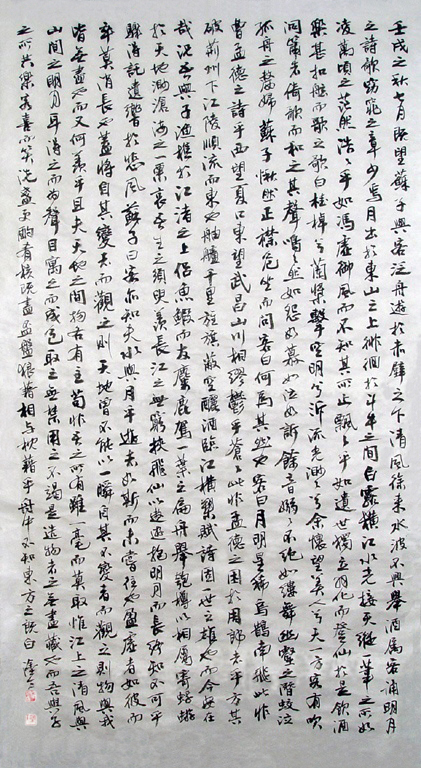 壬戌之秋七月既望蘇子與客泛舟遊於赤壁之下清風徐來水波不興舉酒屬客誦明月
之詩歌窈窕之章少焉月出於東山之上徘徊於斗牛之間白露橫江水光接天縱一葦之所如
凌萬頃之茫然浩浩乎如馮虛御風而不知其所止飄飄乎如遺世獨立羽化而登仙於是飲酒
樂甚扣舷而歌之歌曰桂棹兮蘭槳擊空明兮泝流光渺渺兮余懷望美人兮天一方客有吹
洞簫者倚歌而和之其聲嗚嗚然如怨如慕如泣如訴餘音嫋嫋不絕如縷舞幽壑之潛蛟泣
孤舟之嫠婦蘇子愀然正襟危坐而問客曰何為其然也客曰月明星稀烏鵲南飛此非
曹孟德之詩乎西望夏口東望武昌山川相繆鬱乎蒼蒼此非孟德之困於周郎者乎方其
破荊州下江陵順流而東也舳艫千里旌旗蔽空釃酒臨江橫槊賦詩固一世之雄也而今安在
哉況吾與子漁樵於江渚之上侶魚蝦而友麋鹿駕一葉之扁舟舉匏樽以相屬寄蜉蝣
於天地渺滄海之一粟哀吾生之須臾羨長江之無窮挾飛仙以遨遊抱明月而長終知不可乎
驟得託遺響於悲風蘇子曰客亦知夫水與月乎逝者如斯而未嘗往也盈虛者如彼而
卒莫消長也蓋將自其變者而觀之則天地曾不能以一瞬自其不變者而觀之則物與我
皆無盡也而又何羨乎且夫天地之間物各有主苟非吾之所有雖一毫而莫取惟江上之清風與
山間之明月耳得之而為聲目遇之而成色取之無禁用之不竭是造物者之無盡藏也而吾與子
之所共樂客喜而笑洗盞更酌肴核既盡盃盤狼藉相與枕藉乎舟中不知東方之既白